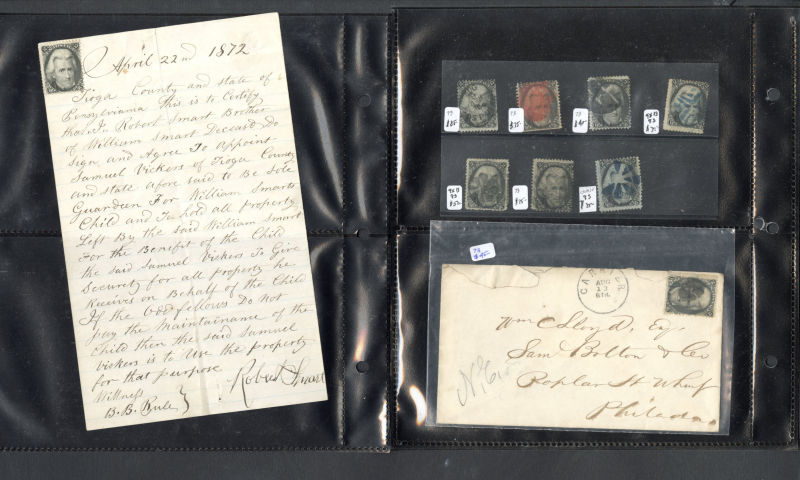 April 22nd 1872
Tioga County and state of
Pensylvania This is to Certify
that I Robert Smart Brother
of William Smart Deceasd Do
sign and Agree To Appoint
Samuel Vickers of Tioga County
and state afore said to Be Sole
Guardeen For William Smarts
Child and To hold all property
Left By the said William Smart
For the Benefit of the Child
the said Samuel Vickers To Give
Securety for all property he
Receives on Behalf of the Child
If the Oddfellows Do Not
pay the Maintainance of the
Child then the said Samuel
Vickers is to Use the property
for that purpose
Robert Smart
Witness
B.B. Rule
73
73
$75-
73
73
73
73
73
$45-
CARRIER
AUG
13
Wm C Lloyd, Esq.
Sam Bolton & Co
Poplar St Wharf
Philada